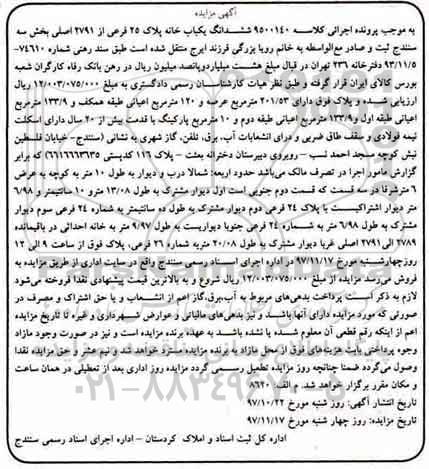 آگهی مزایده
به موجب پرونده اجرائی کلاسه ۹۵۰۰۱۴۰ ششدانگ یکباب خانه پلاک ۲۵ فرعی از ۲۷۹۱ اصلی بخش سه
سنندج ثبت و صادر مع‌الواسطه به خانم رویا بزرگی فرزند ایرج منتقل شده است طبق سند رهنی شماره ۷۴۶۱۰-
۹۳/۱۱/۵ دفترخانه ۲۳۶ تهران در قبال مبلغ هشت میلیاردوپانصد میلیون ریال در رهن بانک رفاه کارگران شعبه
بورس کالای ایران قرار گرفته و طبق نظر هیات کارشناسان رسمی دادگستری به مبلغ ۱۲/۰۰۳/۰۷۵/۰۰۰ ریال
ارزیابی شده و پلاک فوق دارای ۲۰۱/۵۳ مترمربع عرصه و ۱۲۰ مترمربع اعیانی طبقه همکف و ۱۳۳/۹ مترمربع
اعیانی طبقه اول و ۱۳۳/۹ مترمربع اعیانی طبقه دوم و ۱۰ مترمربع پارکینگ با قدمت بیش از ۲۰ سال دارای اسکلت
نیمه فولادی و سقف طاق ضربی و درای انشعابات آب، برق، تلفن، گاز شهری به نشانی (سنندج - خیابان فلسطین
نبش کوچه مسجد احمد نسب - روبروی دبیرستان دخترانه بعثت - پلاک ۱۱۶ کدپستی ۶۶۱۶۶۱۳۶۳۵) که برابر
گزارش مامور اجرا در تصرف مالک می‌باشد حدود اربعه: شمالا درب و دیوار به طول ۱۰ متر به کوچه به عرض
۶ مترشرقا در سه قسمت که قسمت دوم جنوبی است اول دیوار مشترک به طول ۱۳/۰۸ مترو ۱۰ سانتیمتر و ۶/۹۸
متر دیوار اشتراکیست با پلاک ۲۴ فرعی دوم دیوار مشترک به طول ده سانتیمتر به شماره ۲۴ فرعی سوم دیوار
مشترک به طول ۶/۹۸ متر به شماره ۲۴ فرعی جنوبا دیواریست به طول ۹/۹۰ متر به خانه احداثی در باقیمانده
۲۷۸۹ الی ۲۷۹۱ اصلی غربا دیوار مشترک به طول ۲۰/۰۸ متربه شماره ۲۶ فرعی، پلاک فوق از ساعت ۹ الی ۱۲
روزچهارشنبه مورخ ۹۷/۱۱/۱۷ در اداره اجرای اسناد رسمی سنندج واقع در سایت اداری از طریق مزایده به
فروش می‌رسد مزایده از مبلغ ۱۲/۰۰۳/۰۷۵/۰۰۰ ریال شروع و به بالاترین قیمت پیشنهادی نقدا فروخته می‌شود
لازم به ذکر است پرداخت بدهی‌های مربوط به آب،برق،گاز اعم از انشعاب و یا حق اشتراک و مصرف در
صورتی که مورد مزایده دارای آنها باشد و نیز بدهی‌های مالیاتی و عوارض شهرداری و غیره تا تاریخ مزایده
اعم از اینکه رقم قطعی آن معلوم شده یا نشده باشد به عهده برنده مزایده است و نیز در صورت وجود مازاد
وجوه پرداختی بابت هزینه‌های فوق از محل مازاد به برنده مزایده مسترد خواهد شد و نیم عشر و حق مزایده نقدا
وصول می‌گردد ضمنا چنانچه روز مزایده تعطیل رسمی گردد مزایده روز اداری بعد از تعطیلی در همان ساعت
و مکان مقرر برگزار خواهد شد. م الف: ۸۶۲۰
تاریخ انتشار آگهی: روز شنبه مورخ ۹۷/۱۰/۲۲
تاریخ مزایده: روز چهار شنبه مورخ ۹۷/۱۱/۱۷
اداره کل ثبت اسناد و املاک کردستان - اداره اجرای اسناد رسمی سنندج